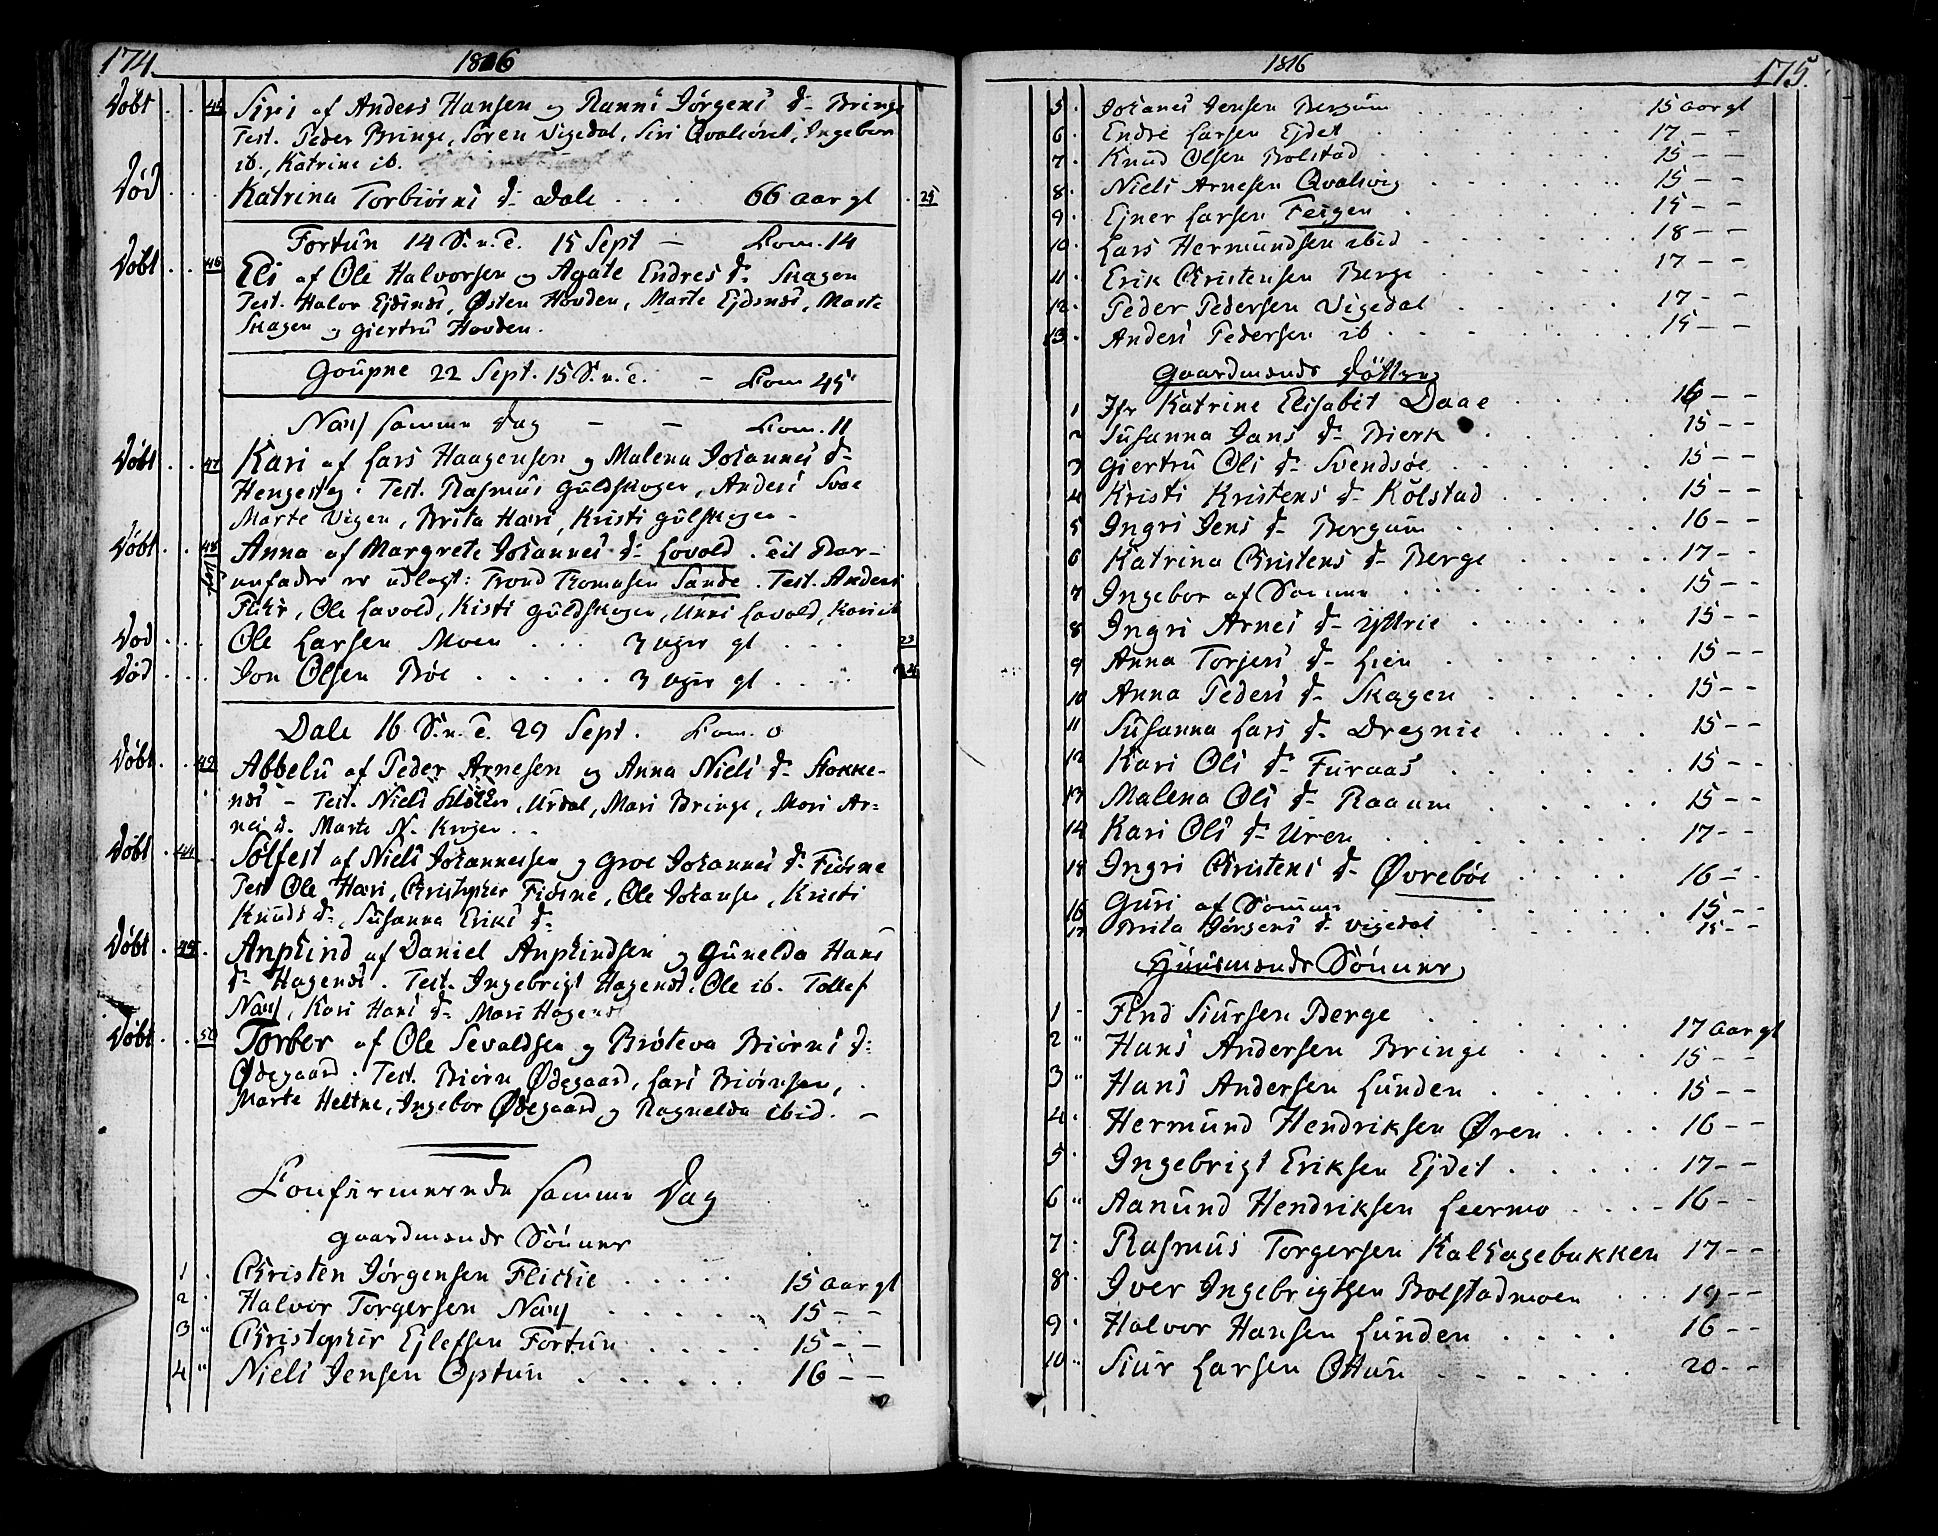 174. 1816
Døbt 45 Siri af Anders Hansen og Ranni Jørgens d. Bringe
Test. Peder Bringe, Søren Vigedal, Siri Qvalsøret, Ingebor
ib., Katrine ib.
Død Katrina Torbiørns d. Dale 66 aar gl 25
Fortun 14 S. n. T. 15 Sept – Com. 14
Døbt 46 Eli af Ole Halvorsen og Agate Endres d. Skagen
Test. Halvor Ejdsnæs, Østen Hovden, Marte Ejdsnæs, Marte
Skagen og Giertru Hovden.
Goupne 22 Sept. 15 S. n. T. – Com 45
Næss samme Dag – – Com. 11
Døbt 47 Kari af Lars Haagensen og Malena Johannes d.
Hengesteg: Test. Rasmus Guldskogen, Anders Svae
Marte Vigen, Brita Hæri, Kristi Gulskogen –
Døbt 48 Anna af Margrete Johannes d. Lovold. Til Bar-
nefader er udlagt: Trond Thomasen Sande. Test. Anders
Fuhr, Ole Lavold, Kisti Guldskogen, Unni Lavold, Kari ib
Død Ole Larsen Moen 3 uger gl 23
Død Jon Olsen Bøe 3 uger gl
Dale 16 S. n. T. 29 Sept. Com. 0
Døbt 49 Abbelu af Peder Arnesen og Anna Niels d. Stokke-
næs – Test. Niels Urdal, Mari Bringe, Mari Ar-
nes d. Marte N. Krojen
Døbt 44 Sølfest af Niels Johannessen og Groe Johannes d. Fiøsne
Test Ole Hari, Christopher Fiøsne, Ole Johansen, Kristi
Knuds d., Susanna Eriks d.
Døbt 45 Anphind af Daniel Anphindsen og Gunelda Hans
d. Hagenæs. Test. Ingebrigt Hagenæs. Ole ib. Tollef
Næss, Kari Hans d. Mari Hagenæs
Døbt 50 Torber af Ole Sevaldsen og Brøteva Biørns d.
Ødegaard: Test. Biørn Ødegaard, Lars Biørnsen,
Marte Heltne, Ingebor Ødegaard og Ragnelda ibid. –
Confirmerede samme Dag
Gaardmænds Sønner
1 Christen Jørgensen Flickie 15 aar gl
2 Halvor Torgersen Næss 15 – –
3 Christopher Ejlefsen Fortun 15 – –
4 Niels Jensen Optun 16 – –
1816 175.
5. Johanes Jensen Bergum 15 aar gl
6. Endre Larsen Ejdet 17 – –
7. Knud Olsen Bolstad 15 – –
8. Niels Arnesen Qvalsvig 15 – –
9. Ejner Larsen Feigen 15 – –
10. Lars Hermundsen ibid 18 – –
11. Erik Christensen Berge 17 – –
12. Peder Pedersen Vigedal 17 – –
13. Anders Pedersen ib 15 – –
Gaardmænds Døttre
1 Jfr Katrine Elisabet Daae 16 – –
2 Susanna Jans d. Bierk 15 – –
3 Giertru Ols d. Svendsøe 15 – –
4 Kristi Kristens d. Kolstad 15 – –
5 Ingri Jens d. Bergum 16 – –
6 Katrina Christens d. Berge 17 – –
7 Ingebor af Somme 15 – –
8 Ingri Arnes d. Ystrie 15 – –
9 Anna Torjers d. Lien 15 – –
10 Anna Peders d. Skagen 15 – –
11 Susanna Lars d. Dregnie 15 – –
12 Kari Ols d. Furaas 15 – –
13 Malena Ols d. Raaum 15 – –
14 Kari Ols d. Uren 17 – –
15 Ingri Christens d. Øvrebøe 16 – –
16 Guri af Somme 15 – –
17 Brita Jørgens d. Vigedal 15 – –
Huusmænds Sønner
1 Find Siursen Berge 17 aar gl
2 Hans Andersen Bringe 15 – –
3 Hans Andersen Lunden 15 – –
4 Hermund Hendriksen Øren 16 – –
5 Ingebrigt Eriksen Ejdet 17 – –
6 Aanund Hendriksen Leermo 16 – –
7 Rasmus Torgersen Kalhagebakken 17 – –
8 Iver Ingebrigtsen Bolstadmoen 19 – –
9 Halvor Hansen Lunden 16 – –
10 Siur Larsen Ottun 20 – –